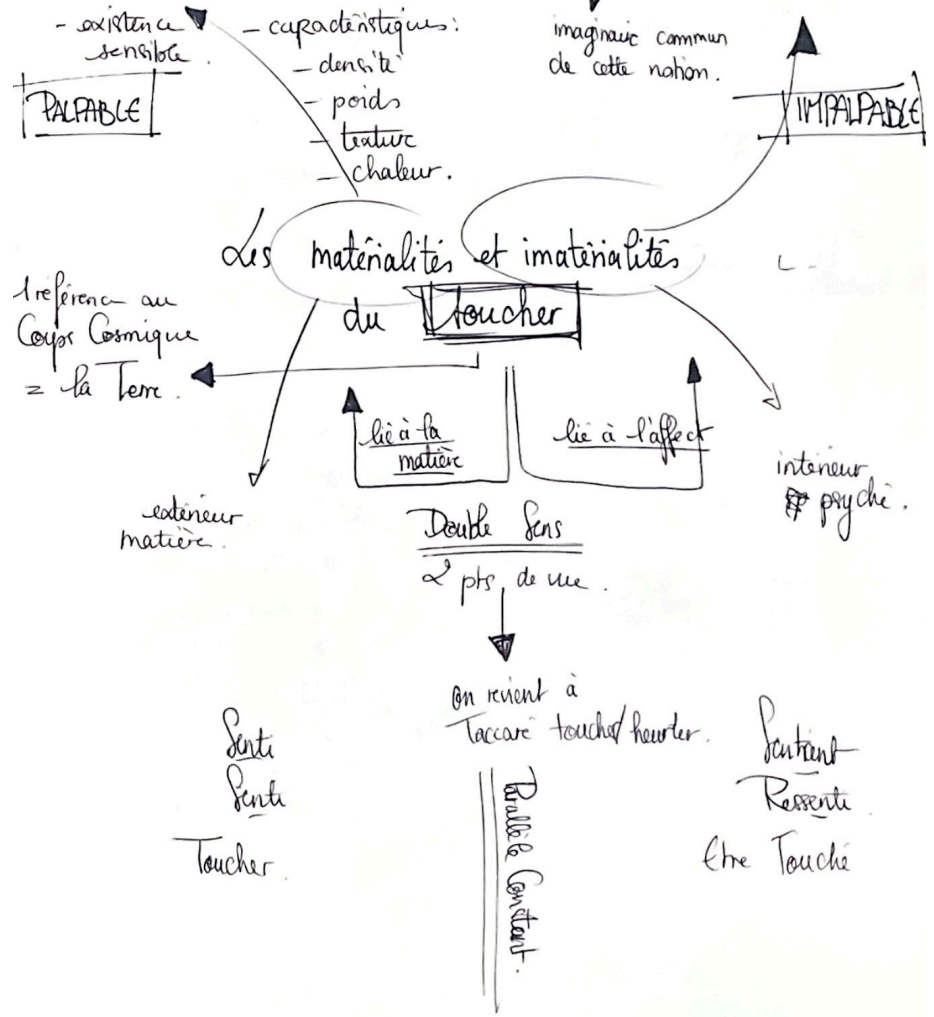 - existence
sensible.
PALPABLE
- caractéristiques:
- densité
- poids
- texture
- chaleur.
imaginaire commun
de cette notion.
IMPALPABLE
Les matérialités et imatérialités
du toucher
1 référence au
Corps Cosmique
= la Terre.
lié à la
matière
lié à l'affect
extérieur
matière.
intérieur
psyché.
Double Sens
2 pts de vue.
On revient à
Taccaré toucher/heurter.
Senti
Senti
Toucher.
Sentant
Ressenti
Etre Touché
Parallèle Constant.